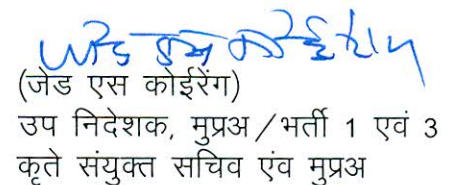 जेड एस कोईरेंग
(जेड एस कोईरेंग)
उप निदेशक, मुप्रअ/भर्ती 1 एवं 3
कृते संयुक्त सचिव एंव मुप्रअ